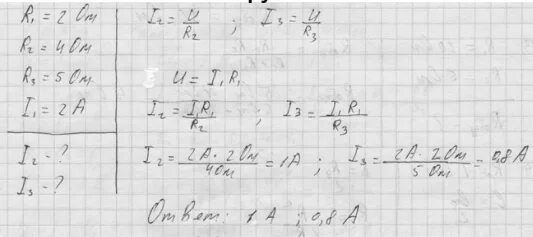 R₁ = 2 Ом
R₂ = 4 Ом
R₃ = 5 Ом
I₁ = 2 А
I₂ - ?
I₃ - ?
I₂ = U/R₂ ; I₃ = U/R₃
U = I₁R₁
I₂ = I₁R₁/R₂ ; I₃ = I₁R₁/R₃
I₂ = 2А · 2Ом/4Ом = 1А ; I₃ = 2А · 2Ом/5Ом = 0,8 А
Ответ: 1 А ; 0,8 А